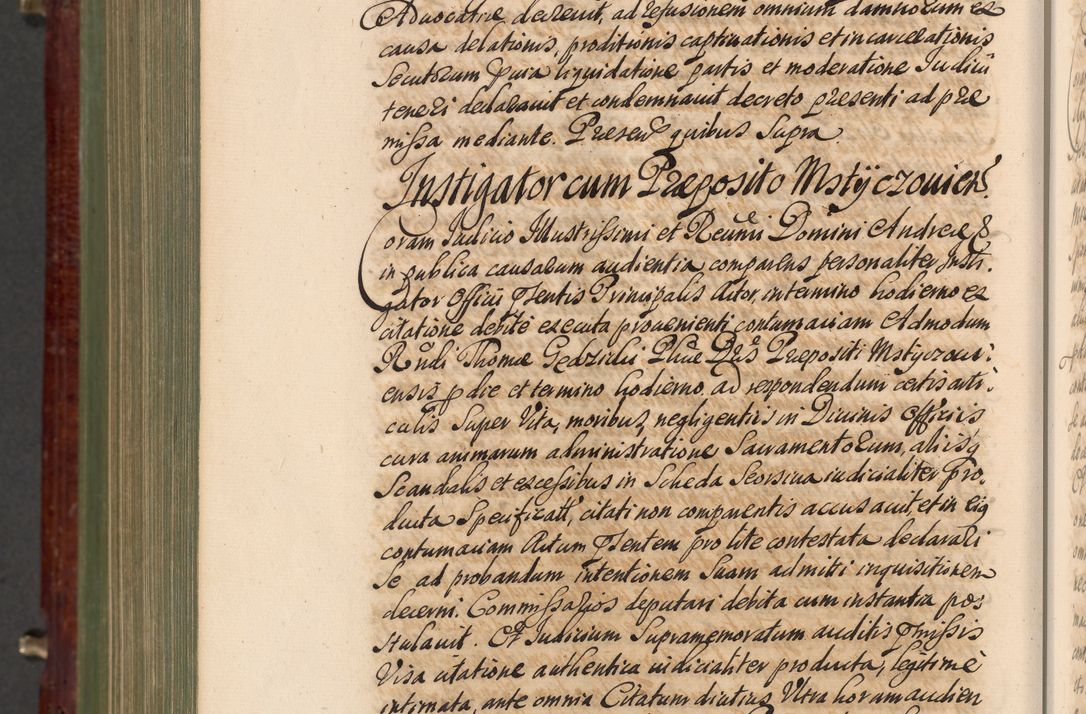 Advocatiæ decrevit, ad refusionem omnium damnorum ex
causa delationis, proditionis captivationis et incarcerationis
Secutorum pura liquidatione partis et moderatione Judicii
teneri declaravit et condemnavit decreto præsenti ad præ
missa mediante. Præsen quibus Supra
Instigator cum Præposito Mstyczovien
Coram Judicio Illustrissimi et Reumi Domini Andreæ
in publica causarum audientia comparens personaliter Insti,
gator Officii psentis Principalis Actor, in termino hodierno ex
citatione debite executa provenienti contumaciam Admodum
Rndi Thomæ Præpositi Mstyczovi,
ensis p die et termino hodierno ad respondendum certis arti,
culis Super Vita, moribus negligentiis in Divinis Officiis
cura animarum administratione Sacramentorum, aliisq
Scandalis et excessibus in Scheda Seorsiva iudicialiter Pro,
ducta Specificatt, citati non comparentis accusavit, et in eiq
contumaciam Actum psentem pro lite contestata declarari
Se ad probandum intentionem Suam admitti inquisitionem
decerni. Commissarios deputari debita cum instantia pos
tulavit. Et Judicium Supramemoratum auditis pmissis
Visa citatione authentica iudicialiter producta, legitime
intimata, ante omnia Citatum diutius Ultra horam audien